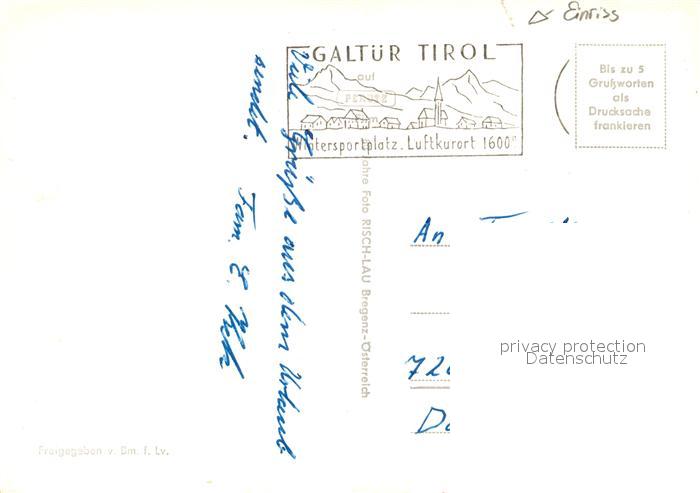 Einriss
GALTÜR TIROL
Wintersportplatz. Luftkurort 1600m
auf
PERUTZ
Bis zu 5
Grußworten
als
Drucksache
frankieren
Viele Grüße aus dem Urlaub
sendet.
Fam.
Jahre Foto RISCH-LAU Bregenz-Österreich
An
72
privacy protection
Datenschutz
Freigegeben v. Bm. f. Lv.